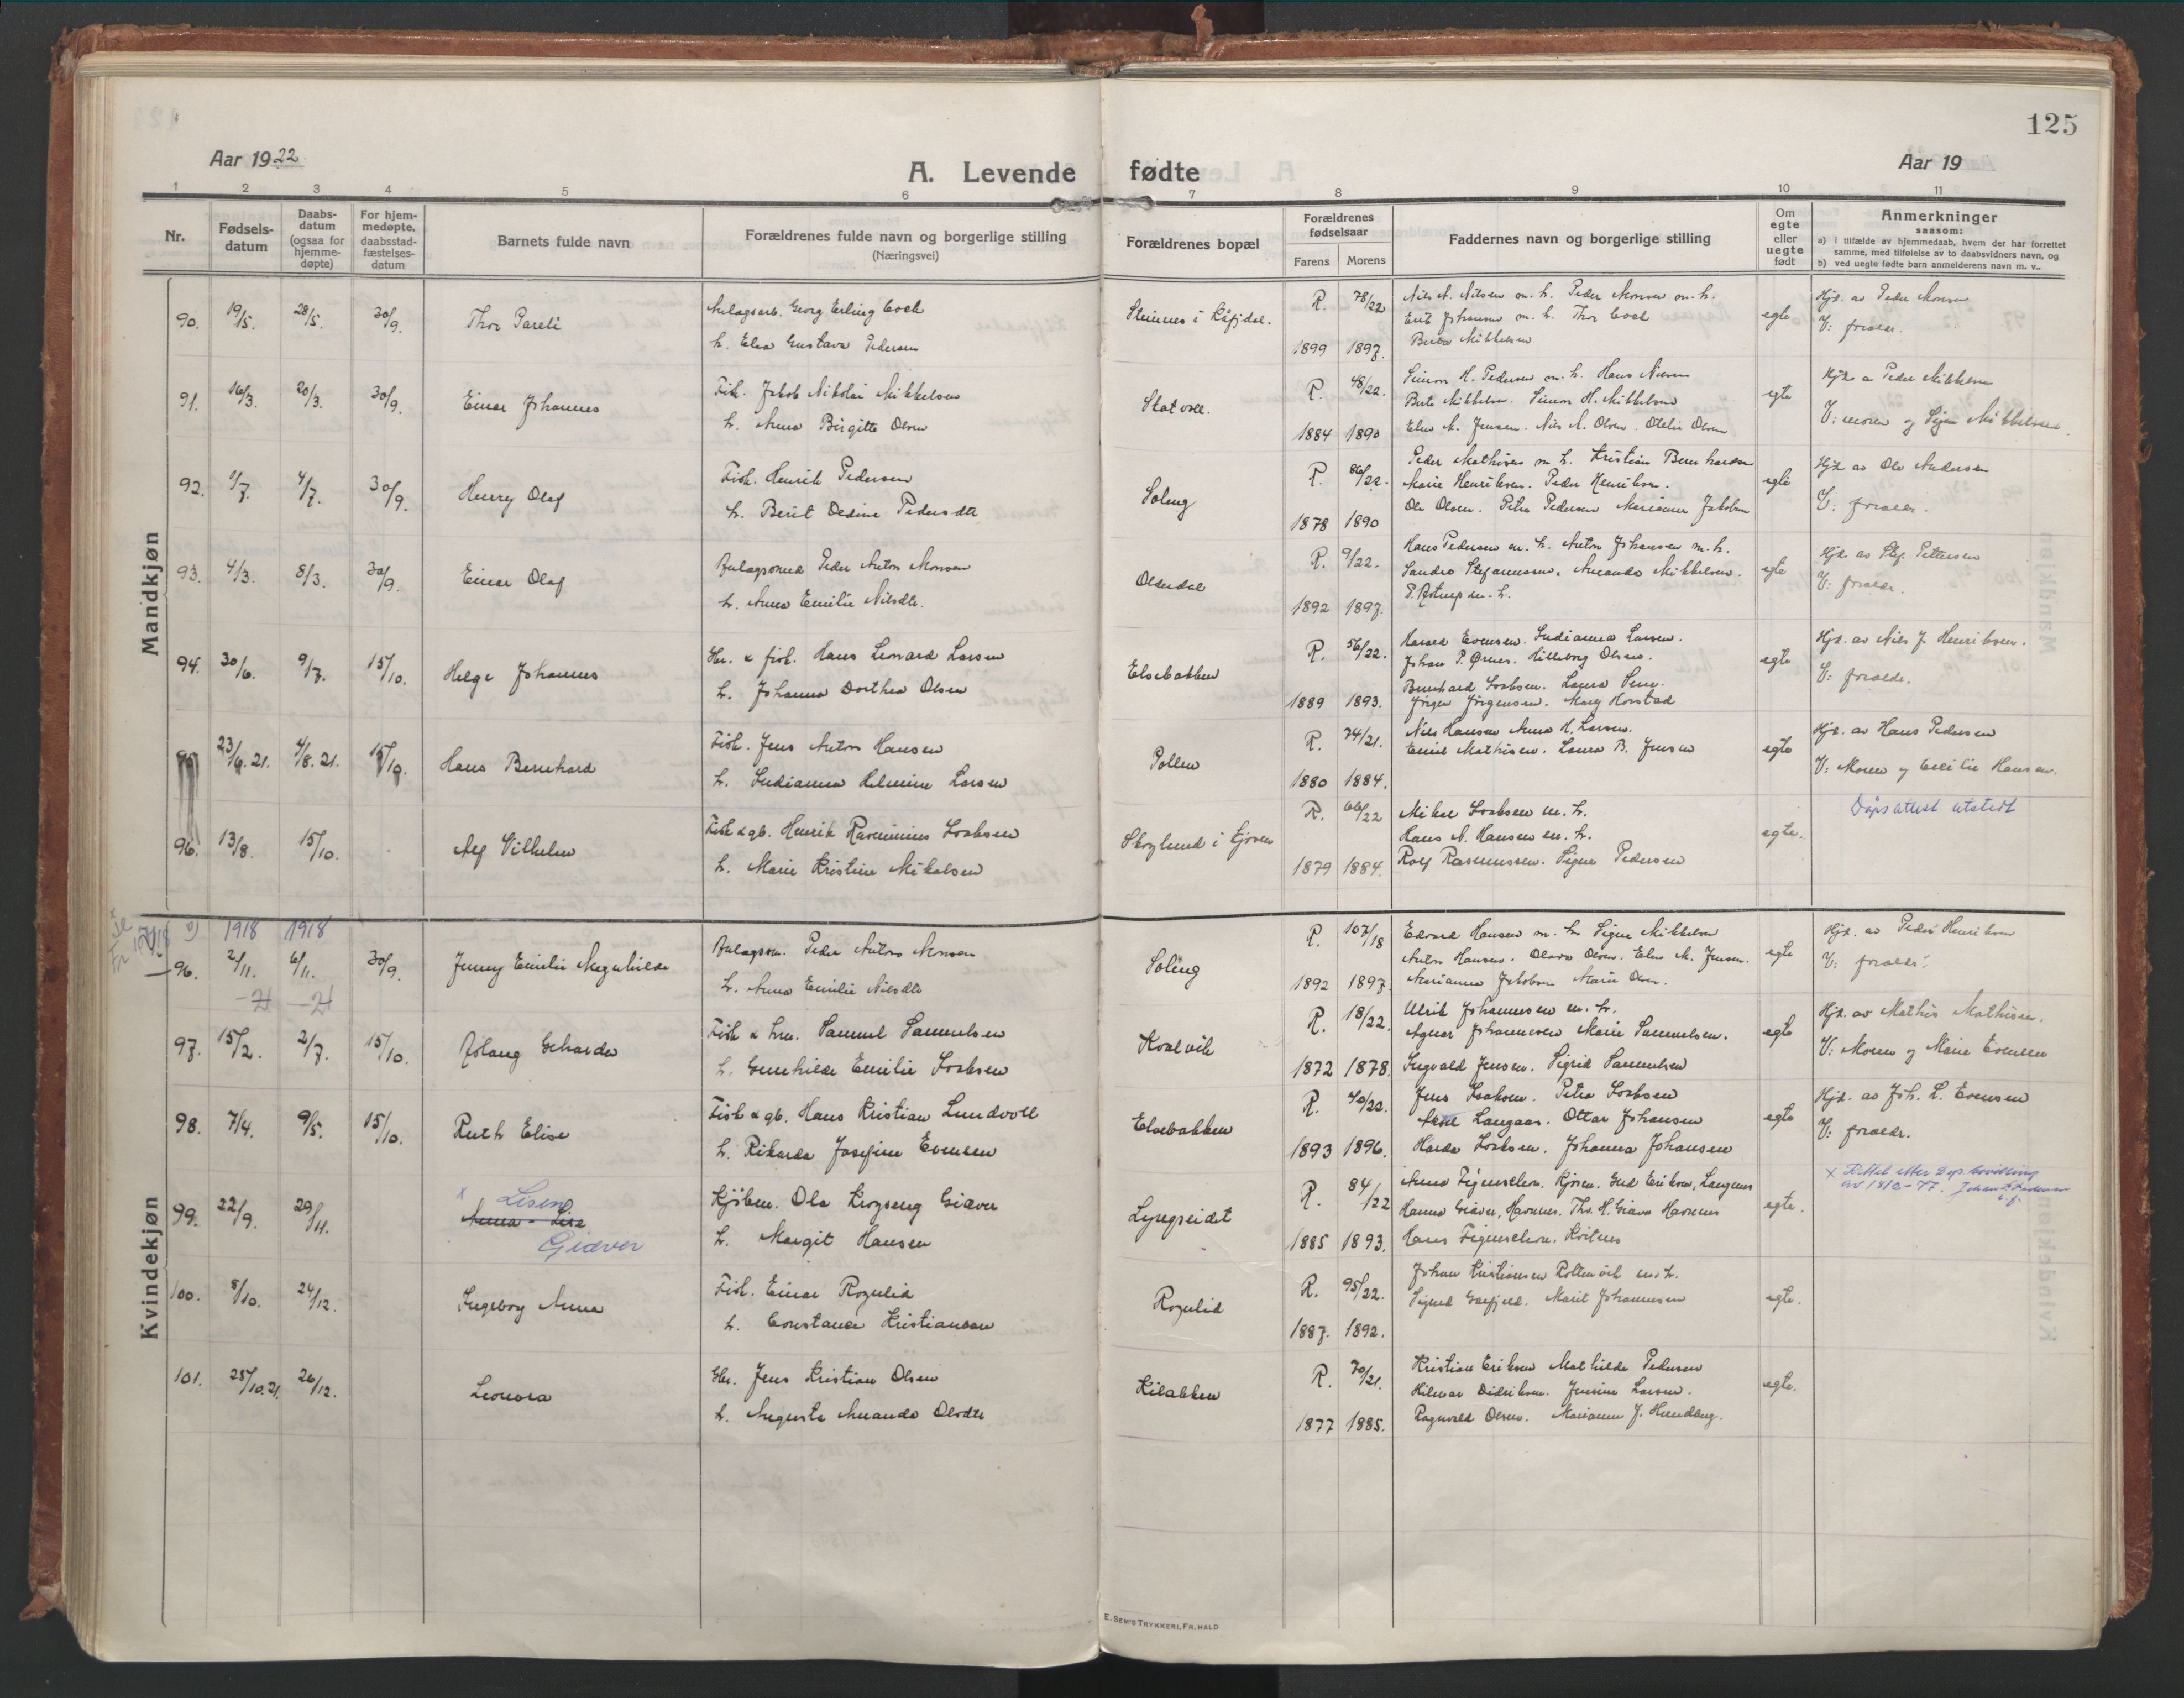 125
Aar 1922.
A. Levende fødte
Aar 19
1 2 3 4 5 6 7 8 9 10 11
Nr.
Fødsels-
datum
Daabs-
datum
(ogsaa for
hjemme-
døpte)
For hjem-
medøpte,
daabsstad-
fæstelses-
datum
Barnets fulde navn
Forældrenes fulde navn og borgerlige stilling
(Næringsvei)
Forældrenes bopæl
Forældrenes
fødselsaar
Farens Morens
Faddernes navn og borgerlige stilling
Om
egte
eller
uegte
født
Anmerkninger
saasom:
a) i tilfælde av hjemmedaab, hvem der har forrettet
samme, med tilføielse av to daabsvidners navn, og
b) ved uegte fødte barn anmelderens navn m. v..
Mandkjøn
90. 19/5. 28/5. 30/9. Thor Pareli
Anlagsarb. Georg Erling Coell
h. Elea Gustava Pedersen
Steinnes i Kåfjdal.
R. 78/22
1899 1897.
Nils A. Nilsen m. h. Peder Monsen m. h.
Erik Johansen m. h. Thor Coell
Berta Mikkelsen
egte
Hjd. av Peder Monsen
V: foraldr.
91. 16/3. 20/3. 30/9. Einar Johannes
Fisk. Jakob Nikolai Mikkelsen
h. Anna Birgitte Olsen
R. 48/22.
1884 1890
Simon H. Pedersen m. h. Hans Nilsen
Berit Mikkelsen. Simon H. Mikkelsen
Elen M. Jensen. Nils A. Olsen. Otelie Olsen
egte
Hjd. a Peder Mikkelsen
V: moren og Signe Mikkelsen.
92. 1/7. 4/7. 30/9. Henry Olaf
Fisk. Henrik Pedersen
h. Berit Dedine Pedersdtr
Soleng
R. 86/22.
1878 1890
Peder Mathisen m. h. Kristian Bernhardsen
Marie Henriksen. Peder Henriksen.
Ole Olsen. Petra Pedersen Marianne Jakobsen
egte
Hjd av Ole Andersen
V: foraldr.
93. 4/3. 8/3. 30/9. Einar Olaf
Peder Anton Monsen
h. Anna Emilie Nilsdtr.
Olderdal
R. 9/22.
1892 1897.
Hans Pedersen m. h. Anton Johansen m. h.
Sandra Stefanussen. Amanda Mikkelsen.
egte
Hjd. av Stef. Pettersen
V: foraldr.
94. 30/6. 9/7. 15/10. Helge Johannes
Gbr. & fisk. Hans Leonard Larsen
h. Johanna Dorthea Olsen
Elvebakken
R. 56/22.
1889 1893.
Harald Evensen. Indianna Larsen.
Johan P. Ørnes. Hilleborg Olsen.
Bernhard Isaksen. Laura
Jørgen Jørgensen. Mary Horstad
egte
Hjd. av Nils J. Henriksen.
V: foraldr.
95. 23/6.21. 4/8.21. 15/10. Hans Bernhard
Fisk. Jens Anton Hansen
h. Indianna Helmine Larsen
Pollen
R. 74/21.
1880 1884.
Nils Hansen Anna H. Larsen.
Emil Mathisen. Laura B. Jensen
egte
Hjd. av Hans Pedersen
V: Moren og Cecilie Hansen.
96. 13/8. 15/10. Alf Vilhelm
Fisk & gb. Henrik Rasmines Isaksen
h. Marie Kristine Mikalsen
Skoglund i Kjosen
R. 66/22
1879 1884.
Mikal Isaksen m. h.
Hans A. Hansen m. h.
Rolf Rasmussen. Signe Pedersen
egte.
Dåpsattest utstedt
Kvindekjøn
1918 1918
96. 2/11. 6/11. 30/9. Jenny Emilie Magnhilde
Peder Anton Monsen
h. Anna Emilie Nilsdtr
Soleng
R. 107/18
1892 1897.
Edvard Hansen m. h Signe Mikkelsen
Anton Hansen. Olava Olsen. Elen M. Jensen.
Marianna Jakobsen Marie Olsen.
egte
Hjd. av Peder Henriksen
V: foraldr.
97. 15/2. 2/7. 15/10. Aslaug Geharda
Fisk & hm. Samuel Samuelsen
h. Gunhilde Emilie Isaksen
Kvalvik
R. 18/22.
1872 1878.
Ulrik Johannesen m. h.
Agnar Johannesen Marie Samuelsen.
Ingvald Jensen. Sigrid Samuelsen
egte
Hjd. av Mathis Mathisen.
V: Moren og Marie Evensen
98. 7/4. 9/5. 15/10. Ruth Elise
Fisk & gb. Hans Kristian Lundvoll
h. Rikarda Josefine Evensen
Elvebakken
R. 40/22.
1893 1896.
Jens Isaksen. Petra Isaksen
Aksel Langaas. Ottar Johansen
Harda Isaksen. Johanna Johansen
egte
Hjd. av Joh. L. Evensen
V: foraldr.
99. 22/9. 29/11. x Lisen
Anna - Lise
Giæver
Kjøbm. Ola Krogseng Giæver
h. Margit Hansen
Lyngseidet
R. 84/22
1885 1893.
Hanna Giæver, Havnnes. Th. H. Giæver Havnnes
egte.
x Rettet etter Dep bevilling
av 18/2-77.
100. 8/10. 24/12. Ingeborg Anna
Fisk. Einar Rognlid
h. Constance Kristiansen
Rognlid
R. 95/22.
1887. 1892.
Johan Kristiansen Rottenvik m. h.
Sigurd Marit Johannesen
egte.
101. 25/10.21. 26/12. Leonora
Gbr. Jens Kristian Olsen
h. Augusta Amanda Olsdtr
Kilbakken
R. 70/21.
1877 1885.
Kristian Eriksen Mathilde Pedersen
Hilmar Didriksen. Jensine Larsen.
Ragnvald Olsen. Marianne J. Hundberg.
egte.
E. SEM'S TRYKKERI, FR.HALD